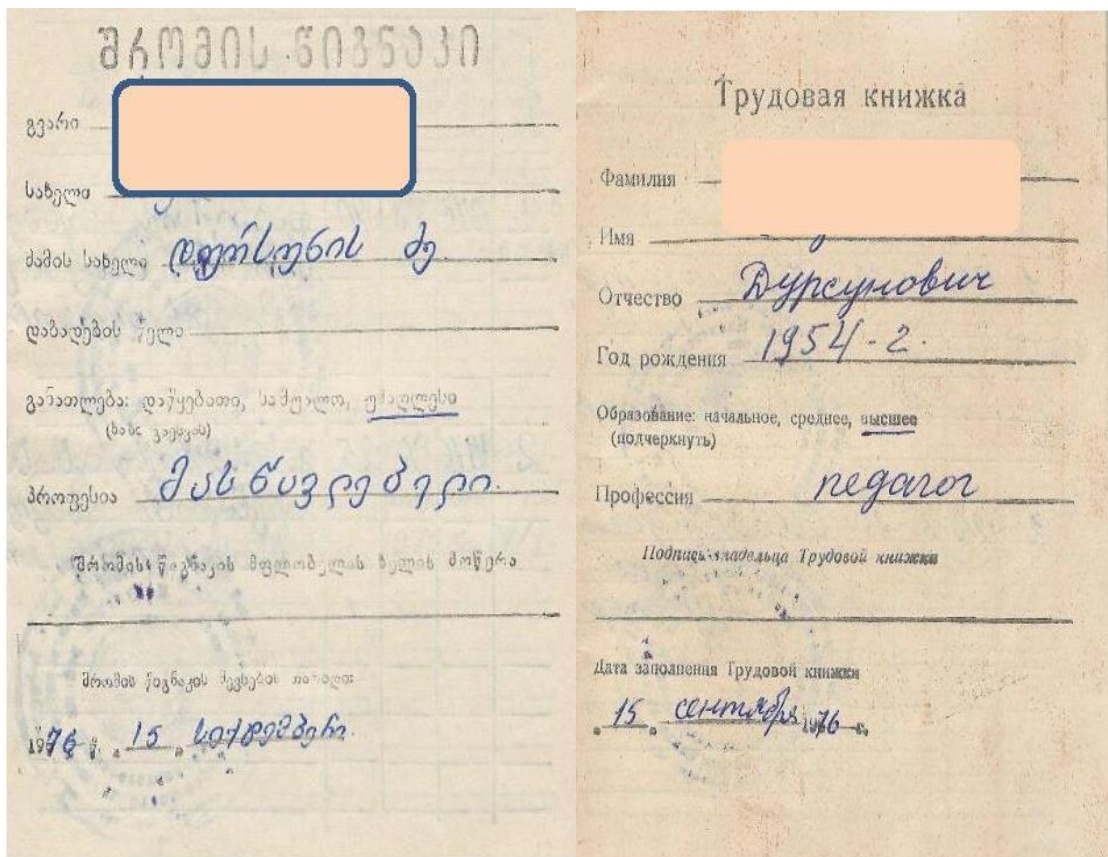 შრომის წიგნაკი
გვარი
სახელი
მამის სახელი დურსუნის ძე
დაბადების წელი
განათლება: დაწყებითი, საშუალო, უმაღლესი
(ხაზი გაესვას)
პროფესია მასწავლებელი.
შრომის წიგნაკის მფლობელის ხელის მოწერა
შრომის წიგნაკის შევსების თარიღი
1976 წ. „15„ სექტემბერი
Трудовая книжка
Фамилия
Имя
Отчество Дурсунович
Год рождения 1954-г.
Образование: начальное, среднее, высшее
(подчеркнуть)
Профессия педагог
Подпись владельца Трудовой книжки
Дата заполнения Трудовой книжки
„15„ сентября 1976 г.